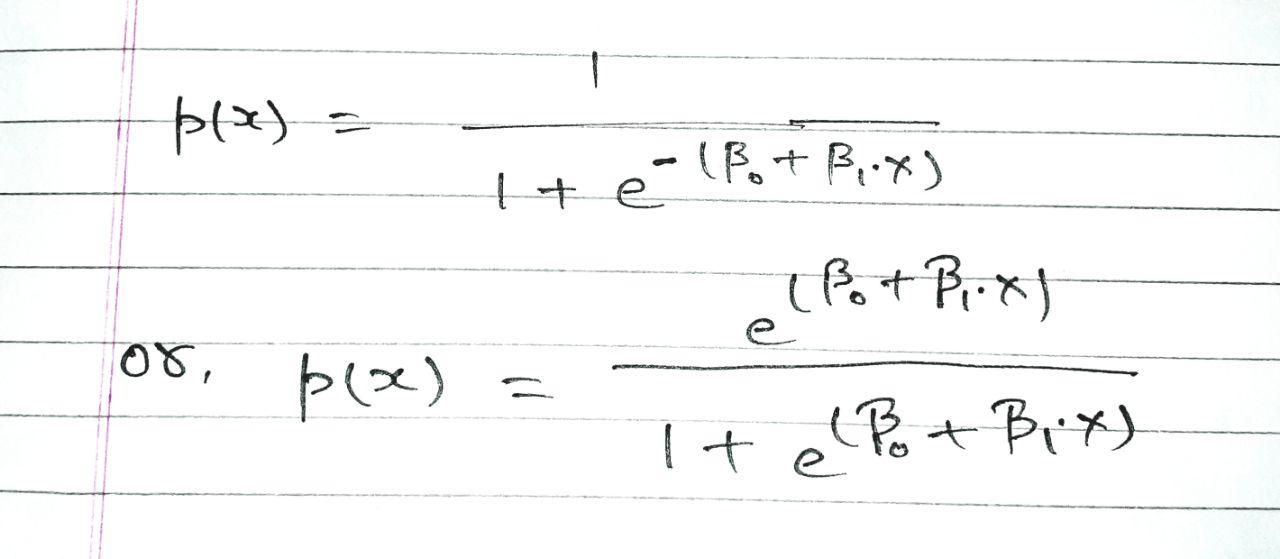 p(x) = 1 / (1 + e^-(β₀ + β₁.x))
or, p(x) = e^(β₀ + β₁.x) / (1 + e^(β₀ + β₁.x))